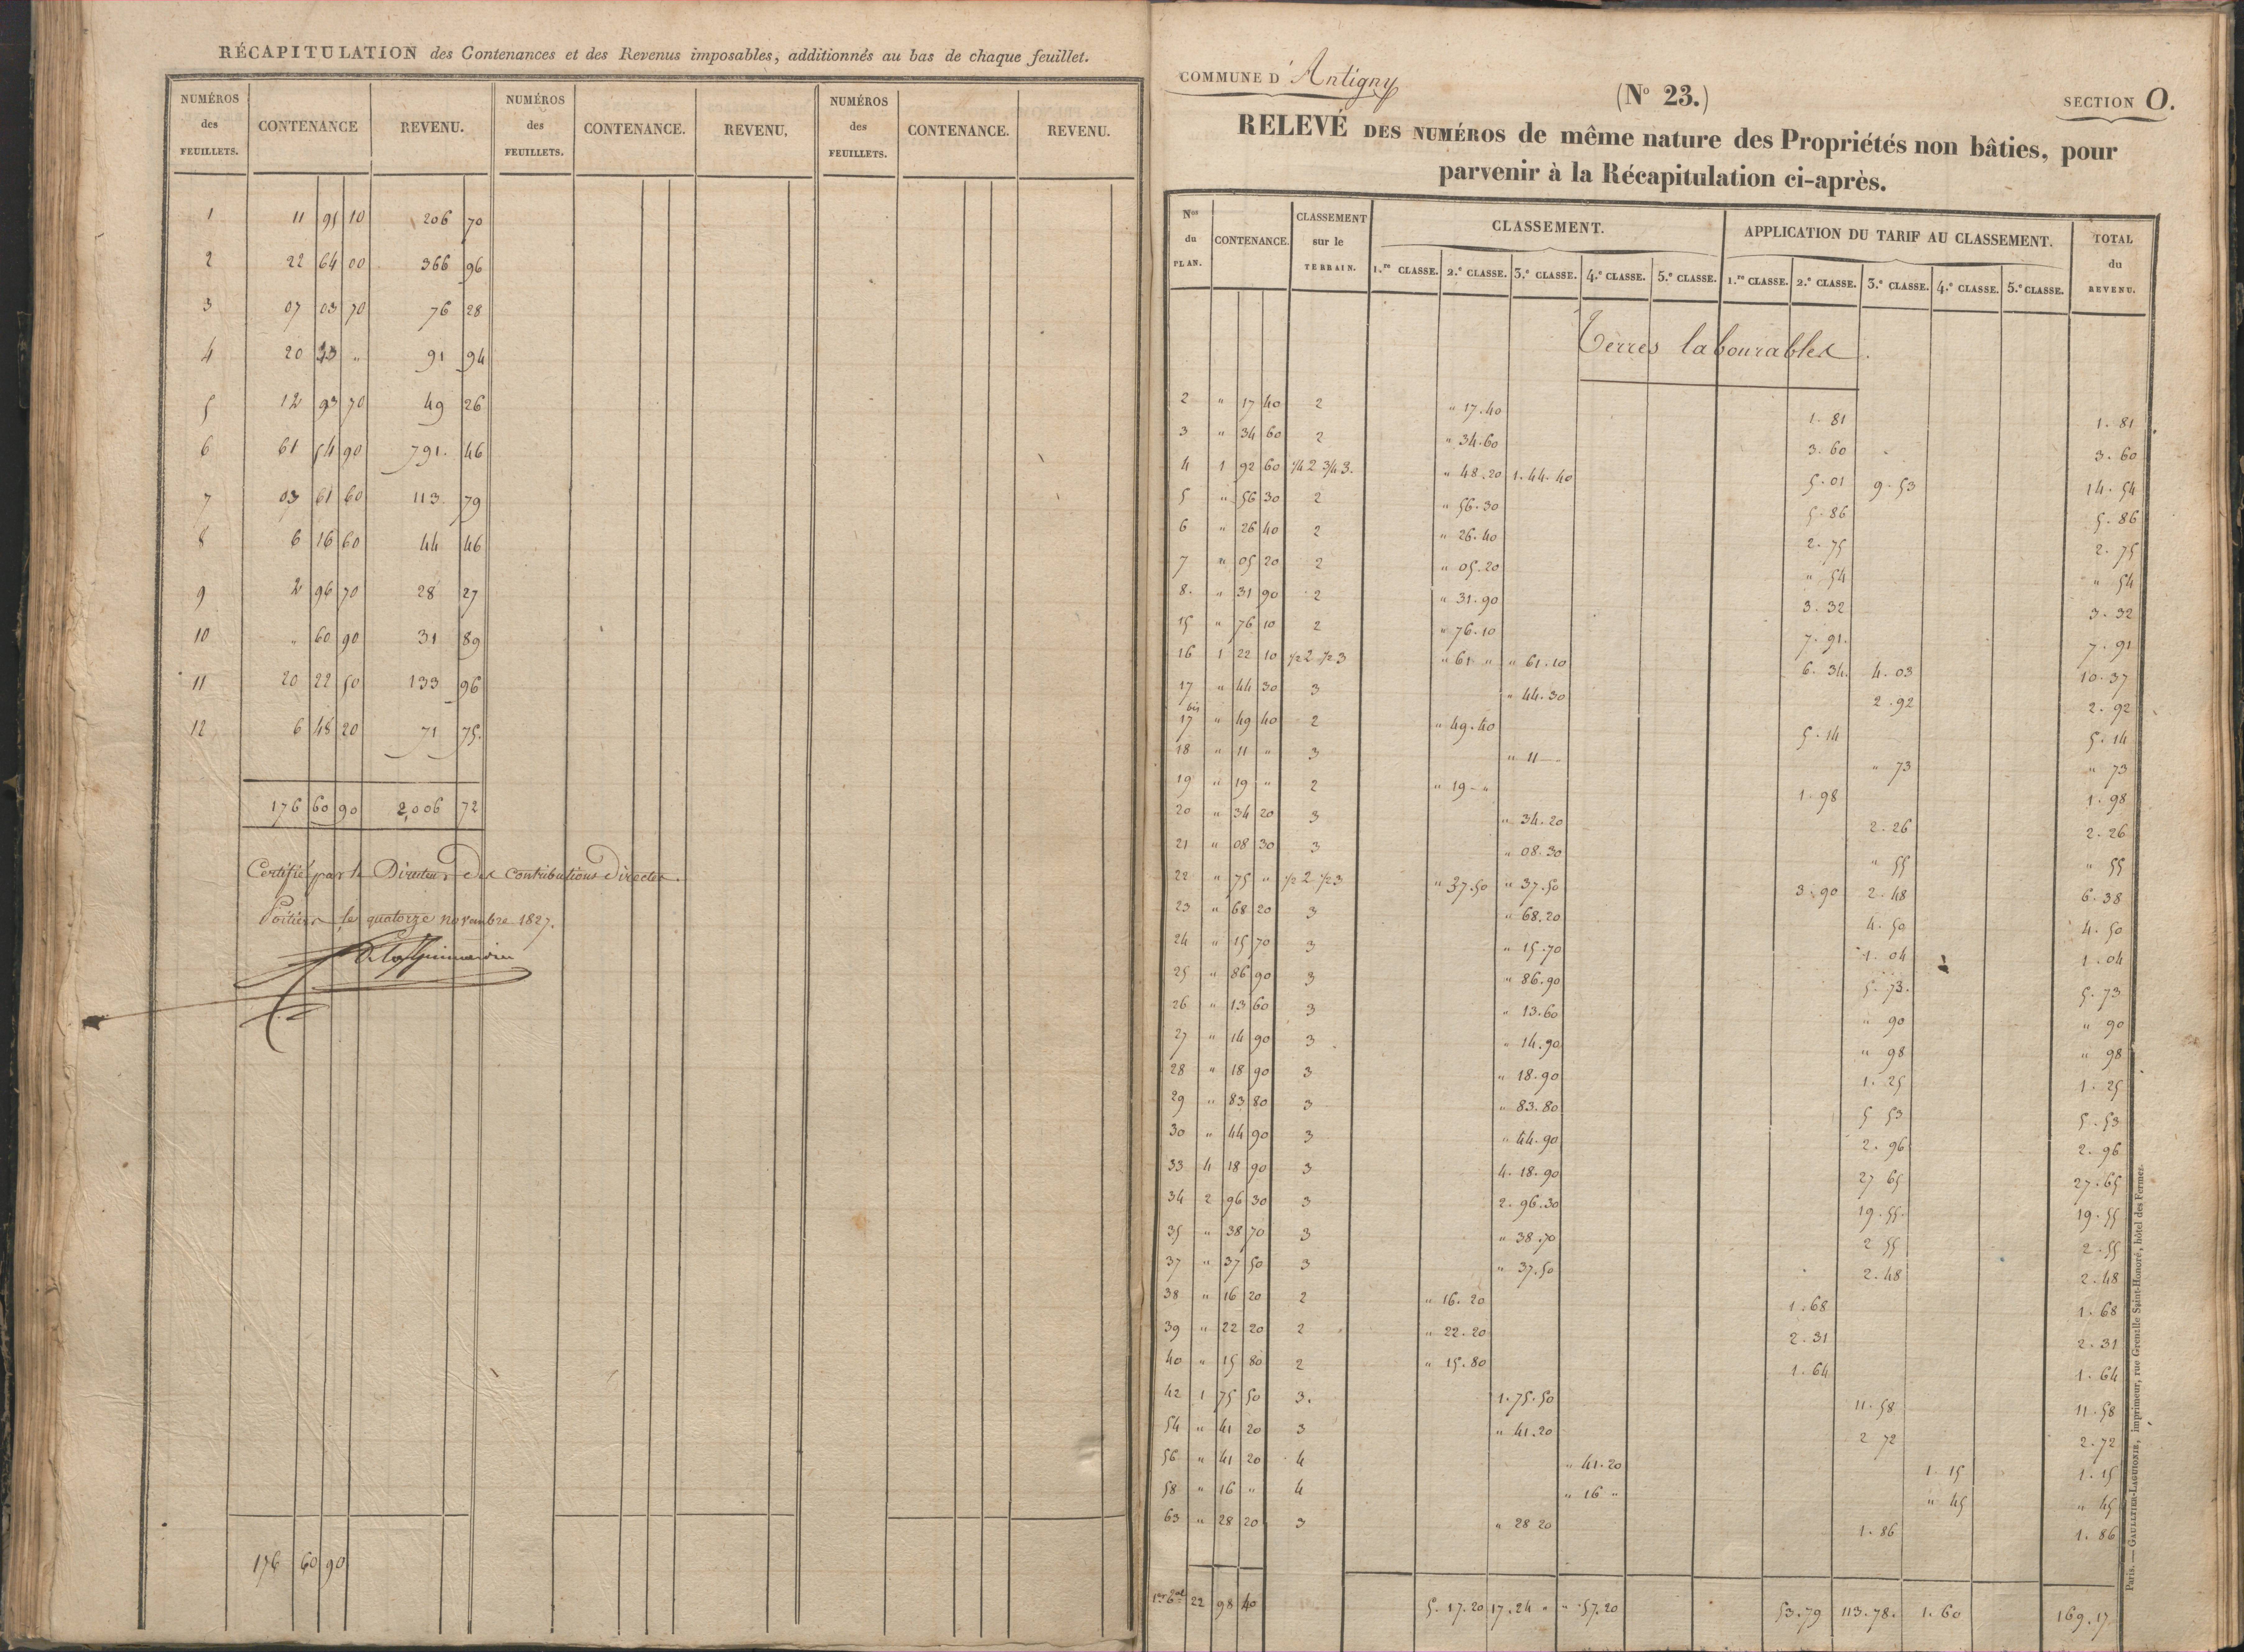 RÉCAPITULATION des Contenances et des Revenus imposables, additionnés au bas de chaque feuillet.
NUMÉROS des FEUILLETS. CONTENANCE REVENU. NUMÉROS des FEUILLETS. CONTENANCE. REVENU. NUMÉROS des FEUILLETS. CONTENANCE. REVENU.
1 11 95 10 206 70
2 22 64 00 366 96
3 07 03 70 76 28
4 20 33 " 91 94
5 12 93 70 49 26
6 61 54 90 791. 46
7 03 61 60 113 79
8 6 16 60 44 46
9 2 96 70 28 27
10 " 60 90 31 89
11 20 22 50 133 96
12 6 48 20 71 75.
176 60 90 2,006 72
Certifié par le Directeur des contributions Directes.
Poitiers le quatorze novembre 1827.
176 60 90
COMMUNE D'Antigny
(No 23.)
SECTION O.
RELEVÉ DES NUMÉROS de même nature des Propriétés non bâties, pour
parvenir à la Récapitulation ci-après.
Nos du PLAN. CONTENANCE. CLASSEMENT sur le TERRAIN. CLASSEMENT. APPLICATION DU TARIF AU CLASSEMENT. TOTAL du REVENU.
1.re CLASSE. 2.e CLASSE. 3.e CLASSE. 4.e CLASSE. 5.e CLASSE. 1.re CLASSE. 2.e CLASSE. 3.e CLASSE. 4.e CLASSE. 5.e CLASSE.
Terres labourables.
2 " 17 40 2 " 17.40 1. 81 1. 81
3 " 34 60 2 " 34.60 3. 60 3. 60
4 1 92 60 1/4 2 3/4 3. " 48.20 1.44.40 5.01 9.53 14.54
5 " 56 30 2 " 56.30 5.86 5.86
6 " 26 40 2 " 26.40 2.75 2.75
7 " 05 20 2 " 05.20 " 54 " 54
8. " 31 90 2 " 31.90 3.32 3.32
15 " 76 10 2 " 76.10 7.91. 7.91
16 1 22 10 1/2 2 1/2 3 " 61 " " 61.10 6.34. 4.03 10.37
17 " 44 30 3 " 44.30 2.92 2.92
17 bis " 49 40 2 " 49.40 5.14 5.14
18 " 11 " 3 " 11 " 73 " 73
19 " 19 " 2 " 19 " 1.98 1.98
20 " 34 20 3 " 34.20 2.26 2.26
21 " 08 30 3 " 08.30 " 55 " 55
22 " 75 " 1/2 2 1/2 3 " 37.50 " 37.50 3.90 2.48 6.38
23 " 68 20 3 " 68.20 4.50 4.50
24 " 15 70 3 " 15.70 1.04 1.04
25 " 86 90 3 " 86.90 5.73. 5.73
26 " 13 60 3 " 13.60 " 90 " 90
27 " 14 90 3 " 14.90 " 98 " 98
28 " 18 90 3 " 18.90 1.25 1.25
29 " 83 80 3 " 83.80 5 53 5.53
30 " 44 90 3 " 44.90 2.96 2.96
33 4 18 90 3 4.18.90 27 65 27.65
34 2 96 30 3 2.96.30 19.55. 19.55
35 " 38 70 3 " 38.70 2 55 2.55
37 " 37 50 3 " 37.50 2.48 2.48
38 " 16 20 2 " 16.20 1.68 1.68
39 " 22 20 2 " 22.20 2.31 2.31
40 " 15 80 2 " 15.80 1.64 1.64
42 1 75 50 3. 1.75.50 11.58 11.58
54 " 41 20 3 " 41.20 2 72 2.72
56 " 41 20 4 " 41.20 1.15 1.15
58 " 16 " 4 " 16 " " 45 " 45
63 " 28 20 3 " 28 20 1.86 1.86
22 98 40 5.17.20 17.24 " " 57.20 53.79 113.78. 1.60 169.17
Paris. — GAULTIER-LAGUIONIE, imprimeur, rue Grenelle Saint-Honoré, hôtel des Fermes.